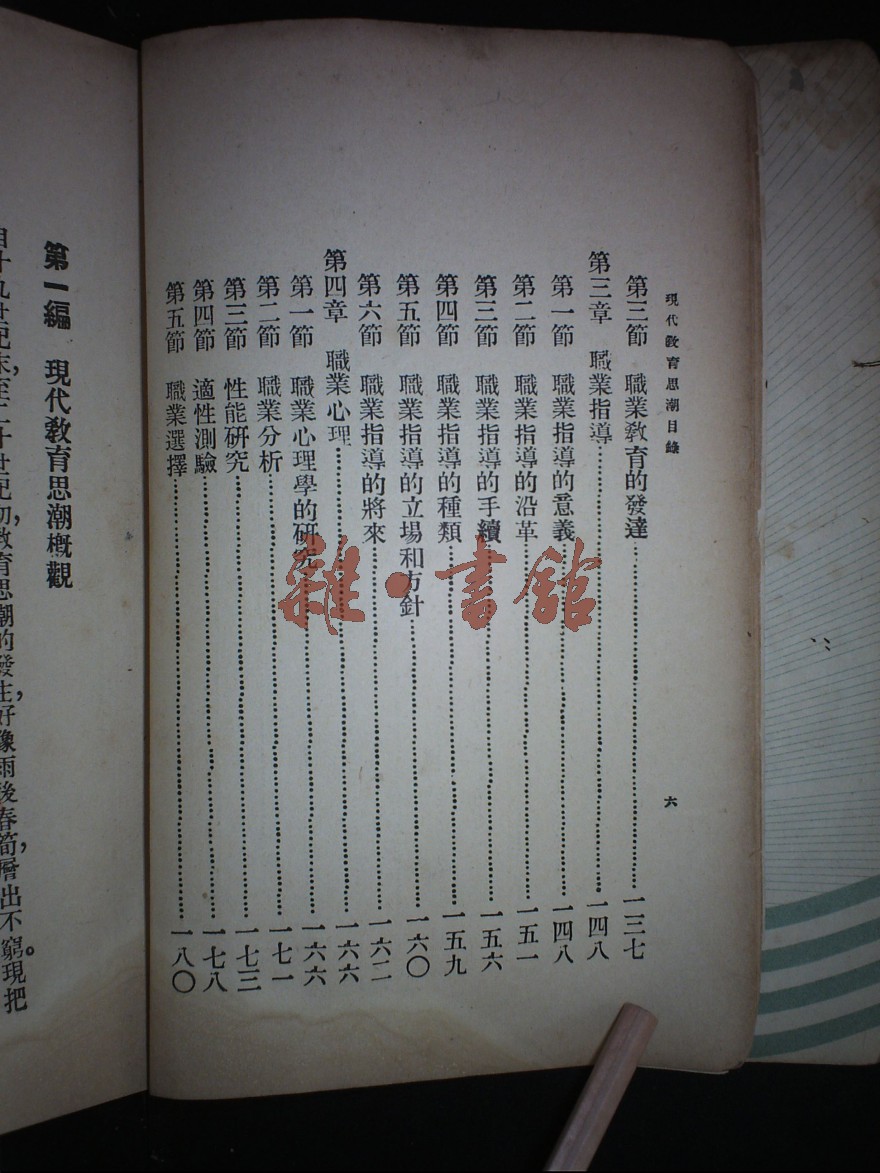 現代敎育思潮目錄
六
第三節 職業敎育的發達……一三七
第三章 職業指導……一四八
第一節 職業指導的意義……一四八
第二節 職業指導的沿革……一五一
第三節 職業指導的手續……一五六
第四節 職業指導的種類……一五九
第五節 職業指導的立場和方針……一六〇
第六節 職業指導的將來……一六二
第四章 職業心理……一六六
第一節 職業心理學的研究……一六六
第二節 職業分析……一七一
第三節 性能研究……一七三
第四節 適性測驗……一七八
第五節 職業選擇……一八〇
雜·書館
第一編 現代敎育思潮槪觀
自十九世紀末，至二十世紀初，敎育思潮的發生，好像雨後春筍，層出不窮。現把